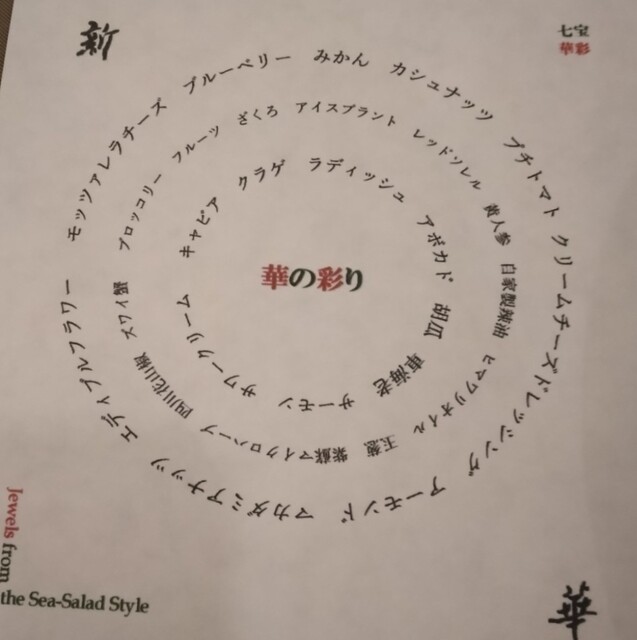 新
七宝
華彩
みかん
カシュナッツ
プチトマト
クリームチーズドレッシング
アーモンド
マカダミアナッツ
エディブルフラワー
モッツァレラチーズ
ブルーベリー
アイスプラント
レッドソレル
黄人参
自家製辣油
ヒマワリオイル
玉葱
紫蘇マイクロハーブ
四川花山椒
ズワイ蟹
ブロッコリー
フルーツ
ざくろ
ラディッシュ
アボカド
胡瓜
車海老
サーモン
サワークリーム
キャビア
クラゲ
華の彩り
Jewels from
the Sea-Salad Style
華